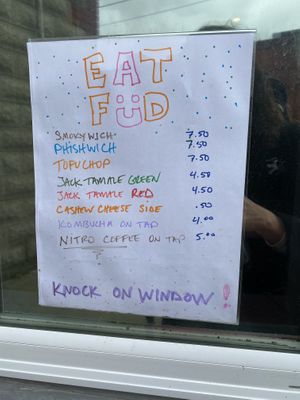 EAT
FUD
SMOKYWICH 7.50
PHISHWICH 7.50
TOFU CHOP 7.50
JACK TAMALE GREEN 4.50
JACK TAMALE RED 4.50
CASHEW CHEESE SIDE .50
KOMBUCHA ON TAP 4.00
NITRO COFFEE ON TAP 5.00
KNOCK ON WINDOW!